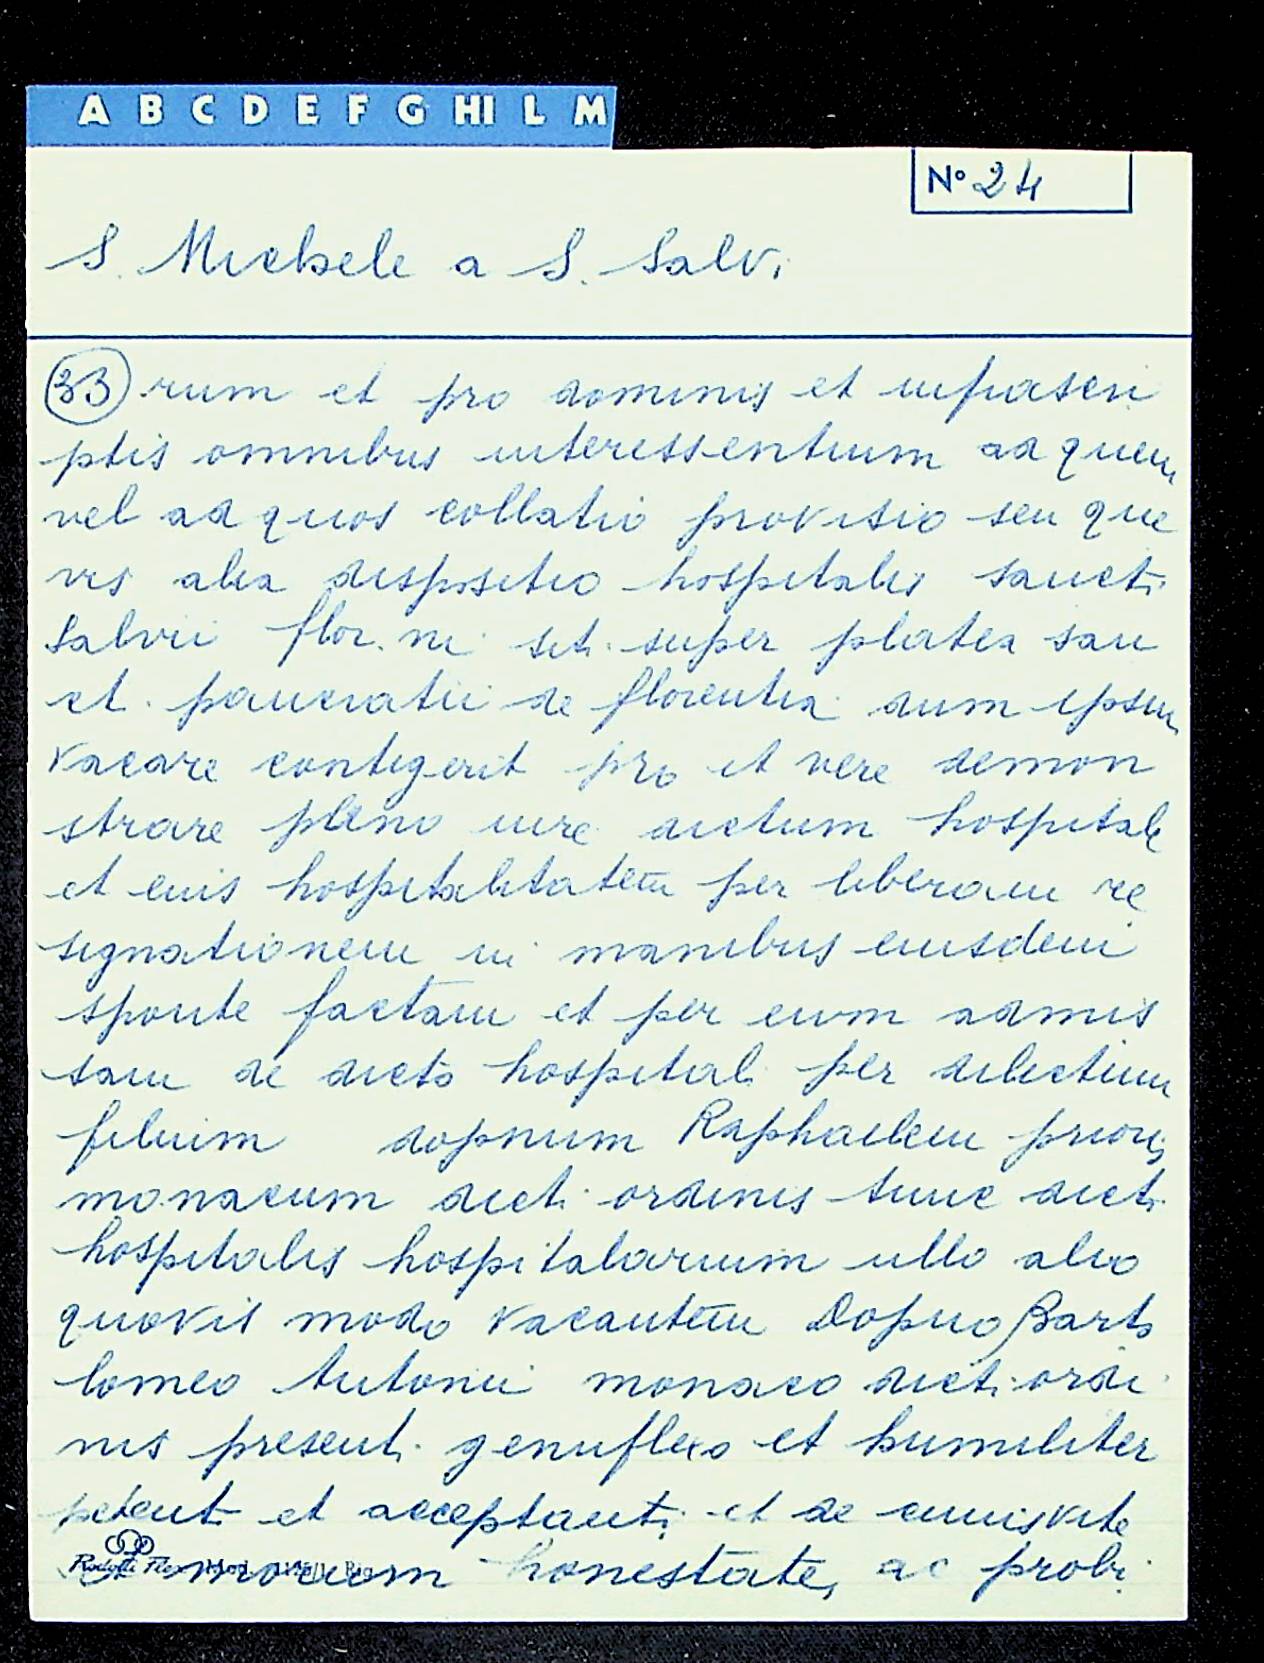 A B C D E F G HI L M
N° 24
S. Michele a S. Salvi
33 rum et pro dominis et infrascri
ptis omnibus interessentium ad quem
vel ad quos collatio provisio seu que
vis alia dispositio hospitalis sancti
Salvii flor. ni sit. super platea san
ct. pancratii de florentia dum ipsum
vacare contigerit pro et vere demon
strare pleno iure dictum hospitale
et euis hospitalitatem per liberam re
signationem in manibus eiusdem
sponte factam et per eum admis
sam de dicto hospitali per dilectum
filium dopnum Raphaelem prioris
monacum dicti ordinis tunc dicti
hospitalis hospitalarium ullo alio
quovis modo vacantem Dopno Barto
lomeo Antonii monaco dicti ordi
nis presenti genuflexo et humiliter
petenti et acceptanti et de cuius vite
et morum honestate, ac probi